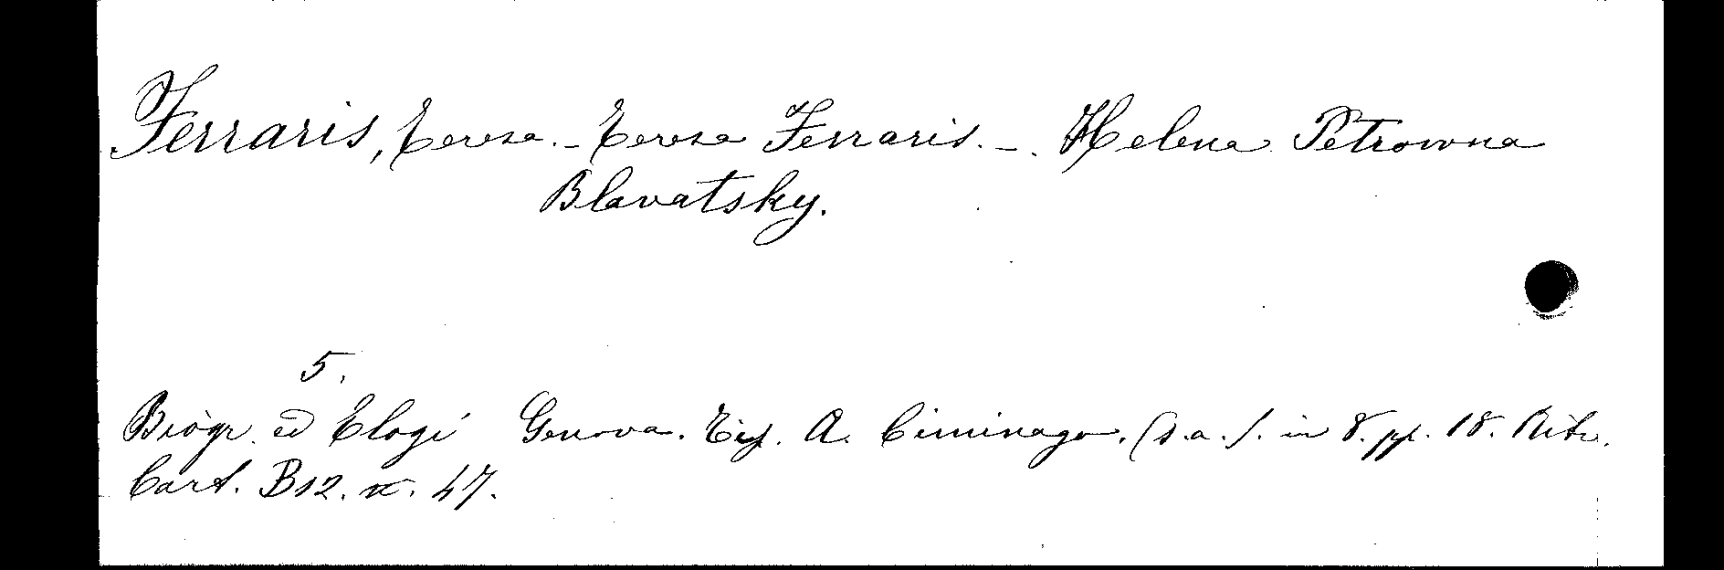 Ferraris, Teresa. - Teresa Ferraris. -. Helena Petrowna
Blavatsky.
5.
Biogr. ed Elogi Genova. Tip. A. Ciminago. (s.a.). in 8. pp. 18. Ritr.
Cart. B12. n. 47.